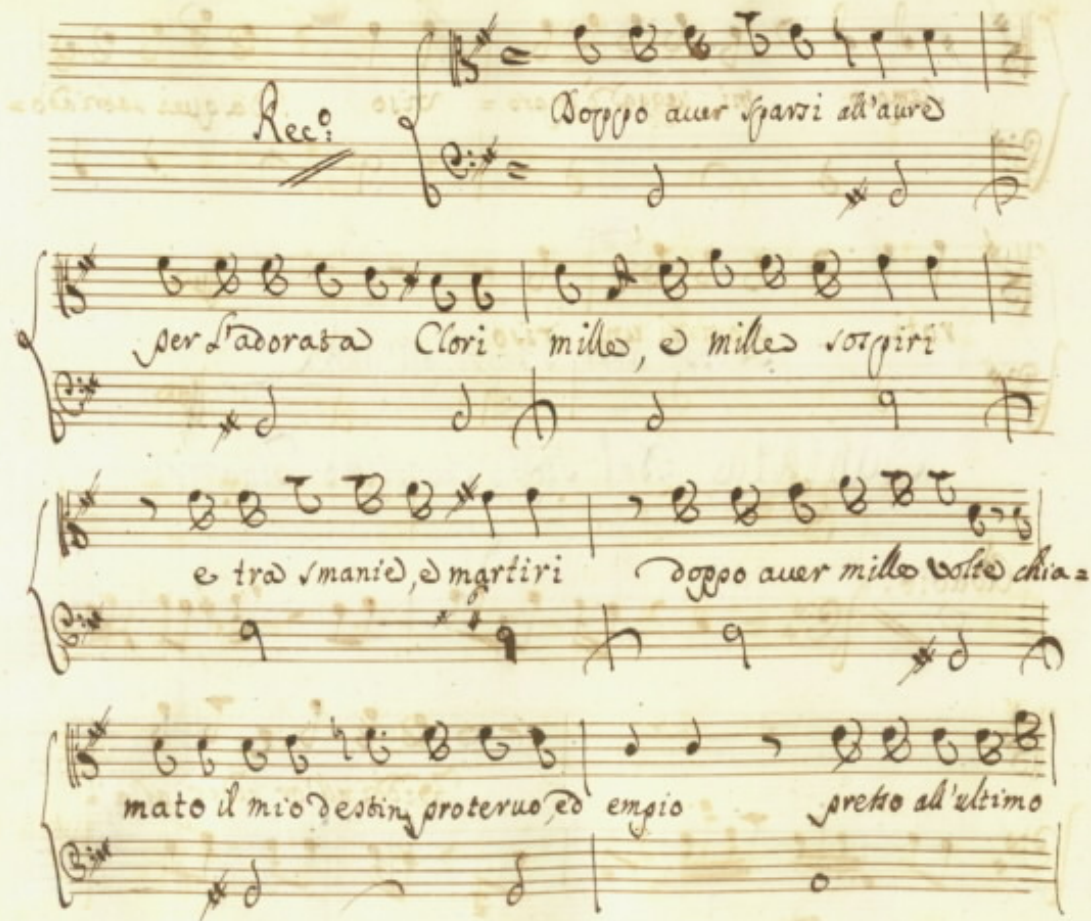 Rec.º:
Doppo auer sparsi all'aure
per L'adorata Clori mille, e mille sospiri
e tra smanie, e martiri doppo auer mille volte chia=
mato il mio destin, proteruo, ed empio presso all'ultimo